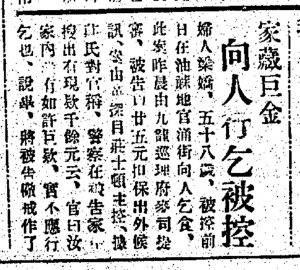 家藏巨金
向人行乞被控
婦人梁嬌、五十八歲、被控前
日在油蔴地官涌街向人乞食、
此案昨晨由九龍巡理府麥司提
審、被告由廿五元担保出外候
訊、案由華探目莊士頓主控、據
莊氏對官稱、警察在被告家中
搜出有現欵千餘元云、官曰汝
家內有如許巨欵、實不應行
乞也、說畢、將被告儆戒作了